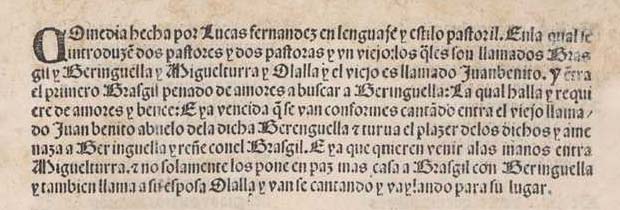 COmedia hecha por Lucas fernandez en lenguaje y estilo pastoril. Enla qual se
introduzẽ dos pastores y dos pastoras y vn viejo: los q̃les son llamados Bras
gil y Beringuella y Miguelturra y Olalla y el viejo es llamado Juanbenito. Y ẽtra
el primero Brasgil penado de amores a buscar a Beringuella: La qual halla y requi
ere de amores y vence: E ya vencida q̃ se van conformes cantãdo entra el viejo llama/
do Juan benito abuelo dela dicha Berenguella ⁊ turua el plazer delos dichos y ame
naza a Beringuella y reñe conel Brasgil. E ya que quieren venir alas manos entra
Miguelturra. ⁊ no solamente los pone en paz mas casa a Brasgil con Beringuella
y tambien llama a su esposa Olalla y van se cantando y vaylando para su lugar.